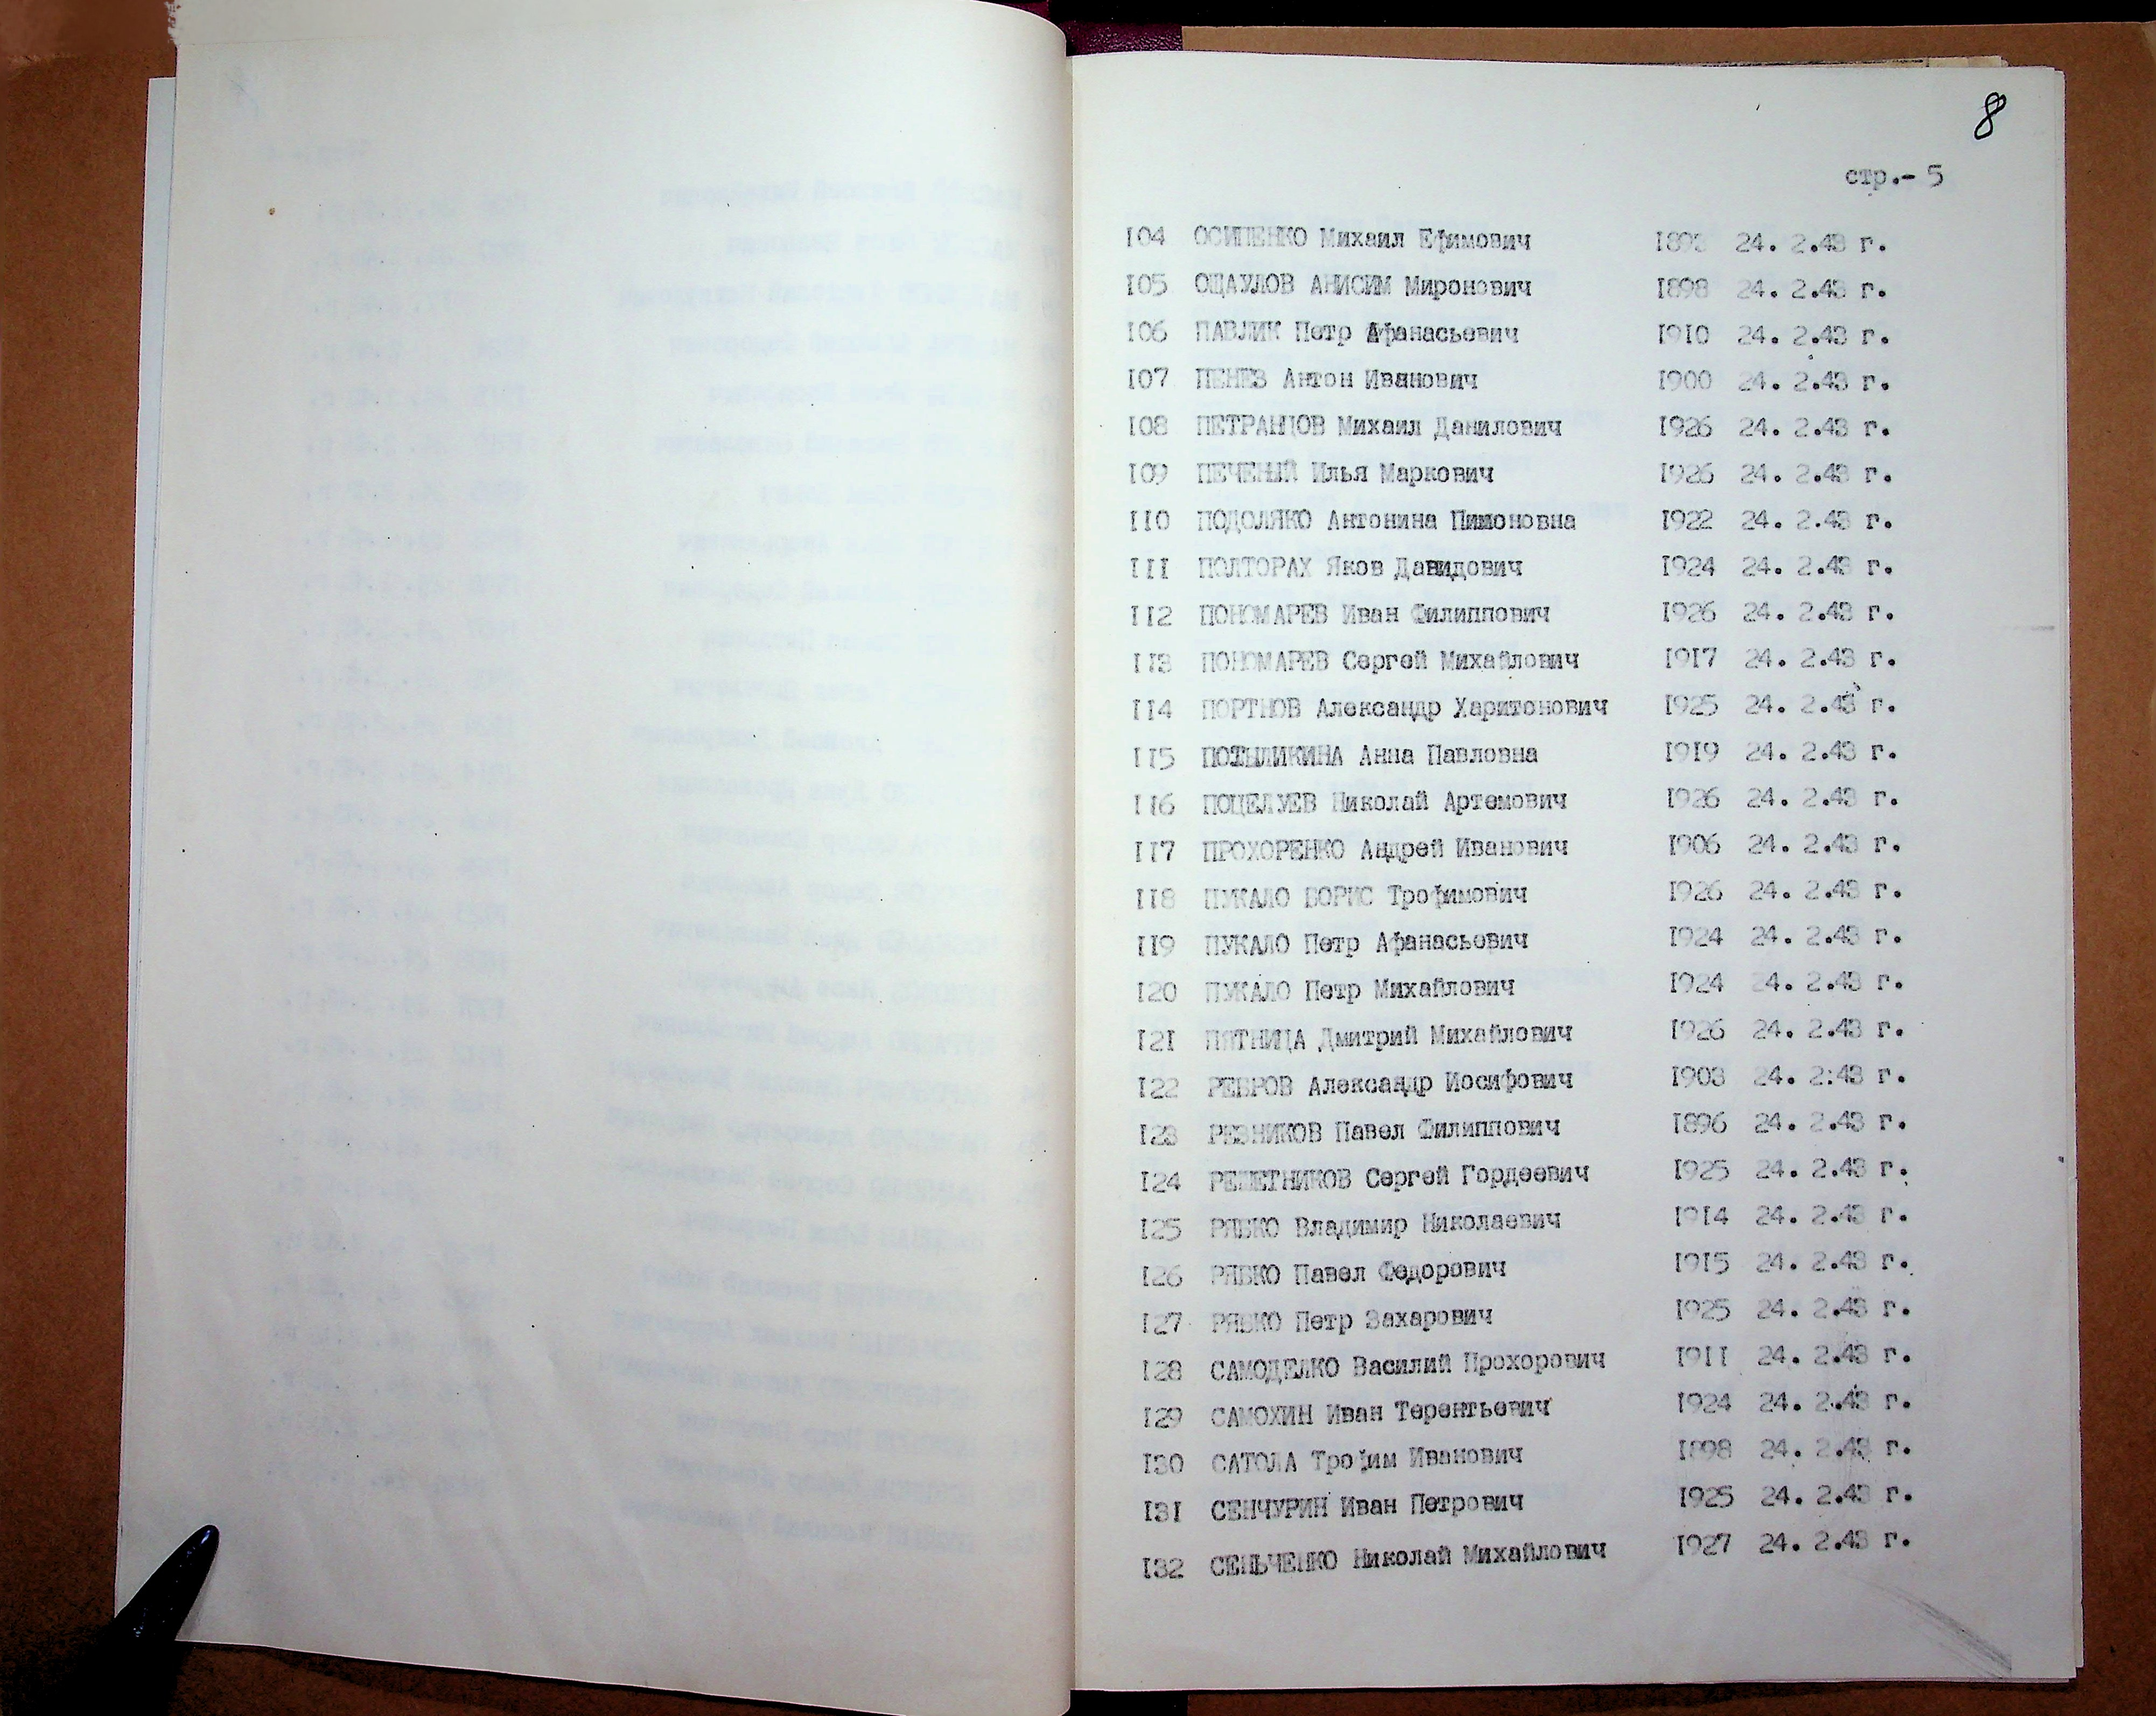 8
стр.- 5
I04 ОСИПЕНКО Михаил Ефимович 24. 2.43 г.
I05 ОЩАУЛОВ АНИСИМ Миронович I898 24. 2.43 г.
I06 ПАВЛИК Петр Афанасьевич I9I0 24. 2.43 г.
I07 ПЕНЕЗ Антон Иванович I900 24. 2.43 г.
I08 ПЕТРАНЦОВ Михаил Данилович I926 24. 2.43 г.
I09 ПЕЧЕНЫЙ Илья Маркович I926 24. 2.43 г.
II0 ПОДОЛЯКО Антонина Пимоновна I922 24. 2.43 г.
III ПОЛТОРАХ Яков Давидович I924 24. 2.43 г.
II2 ПОНОМАРЕВ Иван Филиппович I926 24. 2.43 г.
II3 ПОНОМАРЕВ Сергей Михайлович I9I7 24. 2.43 г.
II4 ПОРТНОВ Александр Харитонович I925 24. 2.43 г.
II5 ПОТЫЛИКИНА Анна Павловна I9I9 24. 2.43 г.
II6 ПОЦЕЛУЕВ Николай Артемович I926 24. 2.43 г.
II7 ПРОХОРЕНКО Андрей Иванович I906 24. 2.43 г.
II8 ПУКАЛО БОРИС Трофимович I926 24. 2.43 г.
II9 ПУКАЛО Петр Афанасьевич I924 24. 2.43 г.
I20 ПУКАЛО Петр Михайлович I924 24. 2.43 г.
I2I ПЯТНИЦА Дмитрий Михайлович I926 24. 2.43 г.
I22 РЕБРОВ Александр Иосифович I903 24. 2:43 г.
I23 РЕЗНИКОВ Павел Филиппович I896 24. 2.43 г.
I24 РЕШЕТНИКОВ Сергей Гордеевич I925 24. 2.43 г.
I25 РЯБКО Владимир Николаевич I9I4 24. 2.43 г.
I26 РЯБКО Павел Федорович I9I5 24. 2.43 г.
I27 РЯБКО Петр Захарович I925 24. 2.43 г.
I28 САМОДЕЛКО Василий Прохорович I9II 24. 2.43 г.
I29 САМОХИН Иван Терентьевич I924 24. 2.43 г.
I30 САТОЛА Трофим Иванович I898 24. 2.43 г.
I3I СЕНЧУРИН Иван Петрович I925 24. 2.43 г.
I32 СЕНЬЧЕНКО Николай Михайлович I927 24. 2.43 г.